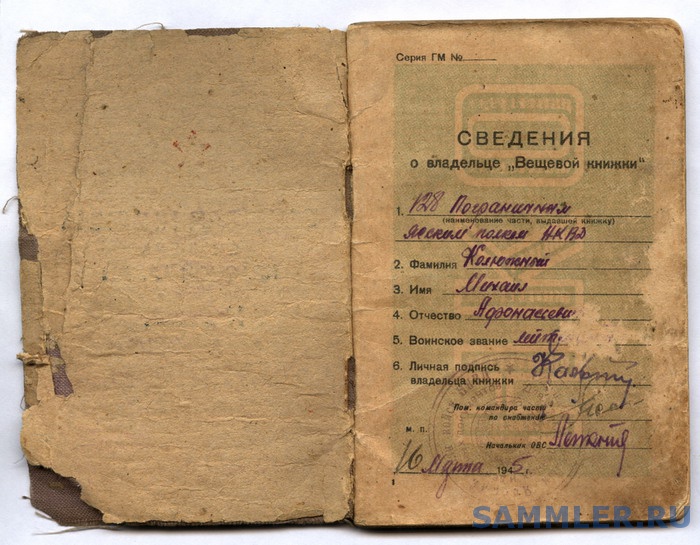 Серия ГМ №
СВЕДЕНИЯ
о владельце „Вещевой книжки“
1. 128 Пограничным
(наименование части, выдавшей книжку)
полком НКВД
2. Фамилия Калюжный
3. Имя Михаил
4. Отчество Афонасьеви
5. Воинское звание
6. Личная подпись
владельца книжки
Пом. командира части
по снабжению
м. п.
Начальник ОВС
16 Марта 1945 г.
1
SAMMLER.RU